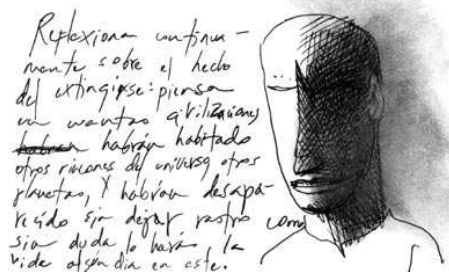 Reflexiona continua-
mente sobre el hecho
del extinguirse: piensa
en cuantas civilizaciones
habran habrán habitado
otros rincones del universo, otros
planetas, y habrán desapa-
recido sin dejar rastro como
sin duda lo hará la
vida algún día en este.